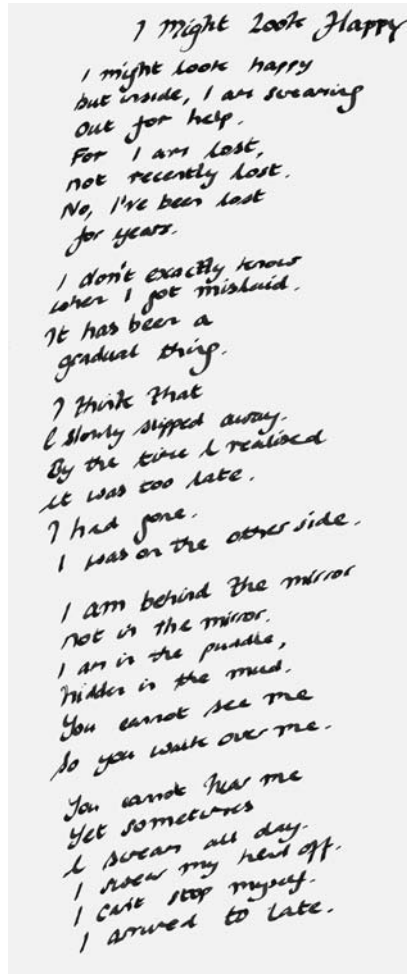 I Might Look Happy
I might look happy
but inside, I am swearing
out for help.
For I am lost,
not recently lost.
No, I've been lost
for years.
I don't exactly know
when I got mislaid.
It has been a
gradual thing.
I think that
I slowly slipped away.
By the time I realised
it was too late.
I had gone.
I was on the other side.
I am behind the mirror
not in the mirror.
I am in the puddle,
hidden in the mud.
You cannot see me
so you walk over me.
You cannot hear me
Yet sometimes
I swear all day.
I swear my head off.
I can't stop myself.
I arrived to late.